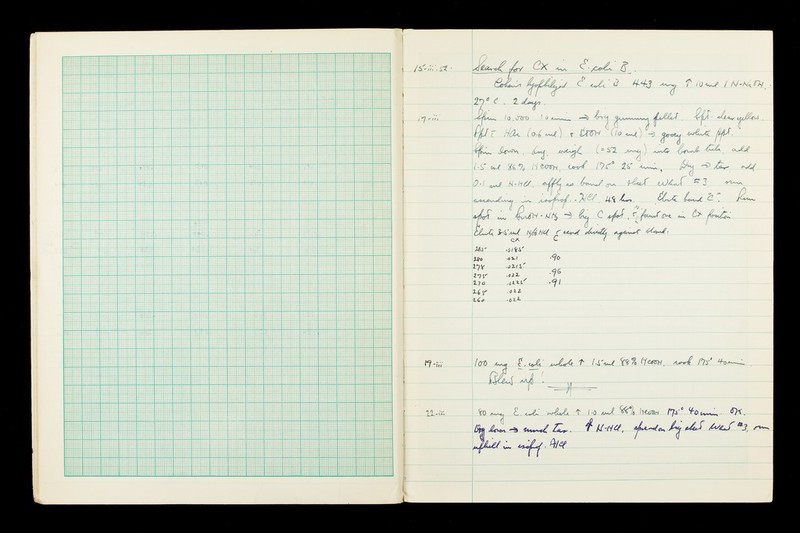 15·iii·52. Search for CX in E. coli B.
Cohen's lyophilized E. coli B 443 mg ↑ 10 ml 1 N-NaOH,
27° C. 2 days.
17·iii Spin 10,000 10 min → big gummy pellet. Spt. clear yellow.
Ppt c̄ HCl (0.6 ml) + EtOH (10 ml) → gooey white ppt.
Spin down, dry, weigh (= 52 mg) into bomb tube add
1.5 ml 88% HCOOH, cook 175° 25 min, Dry → tar, add
0.1 ml N-HCl, apply as band on sheet What #3 run
ascending in isoprop.-HCl 48 hrs. Elute band "C". Run
spot in BuOH-NH3 → big C spot, c̄ faint one in CX position
Elute 3.5 ml N/10 HCl c̄ read directly against blank:
CX
285 .0185
280 .021 .90
278 .0215
275 .022 .96
270 .0225 .91
265 .022
260 .022
19-iii 100 mg E. coli whole ↑ 1.5 ml 88% HCOOH, cook 175° 40 min
Blew up!
22-iii 80 mg E. coli whole ↑ 1.0 ml 88% HCOOH 175° 40 min. OK.
Dry down → much tar. ↑ N-HCl, spread on big sheet What #3, run
uphill in isoprop. HCl